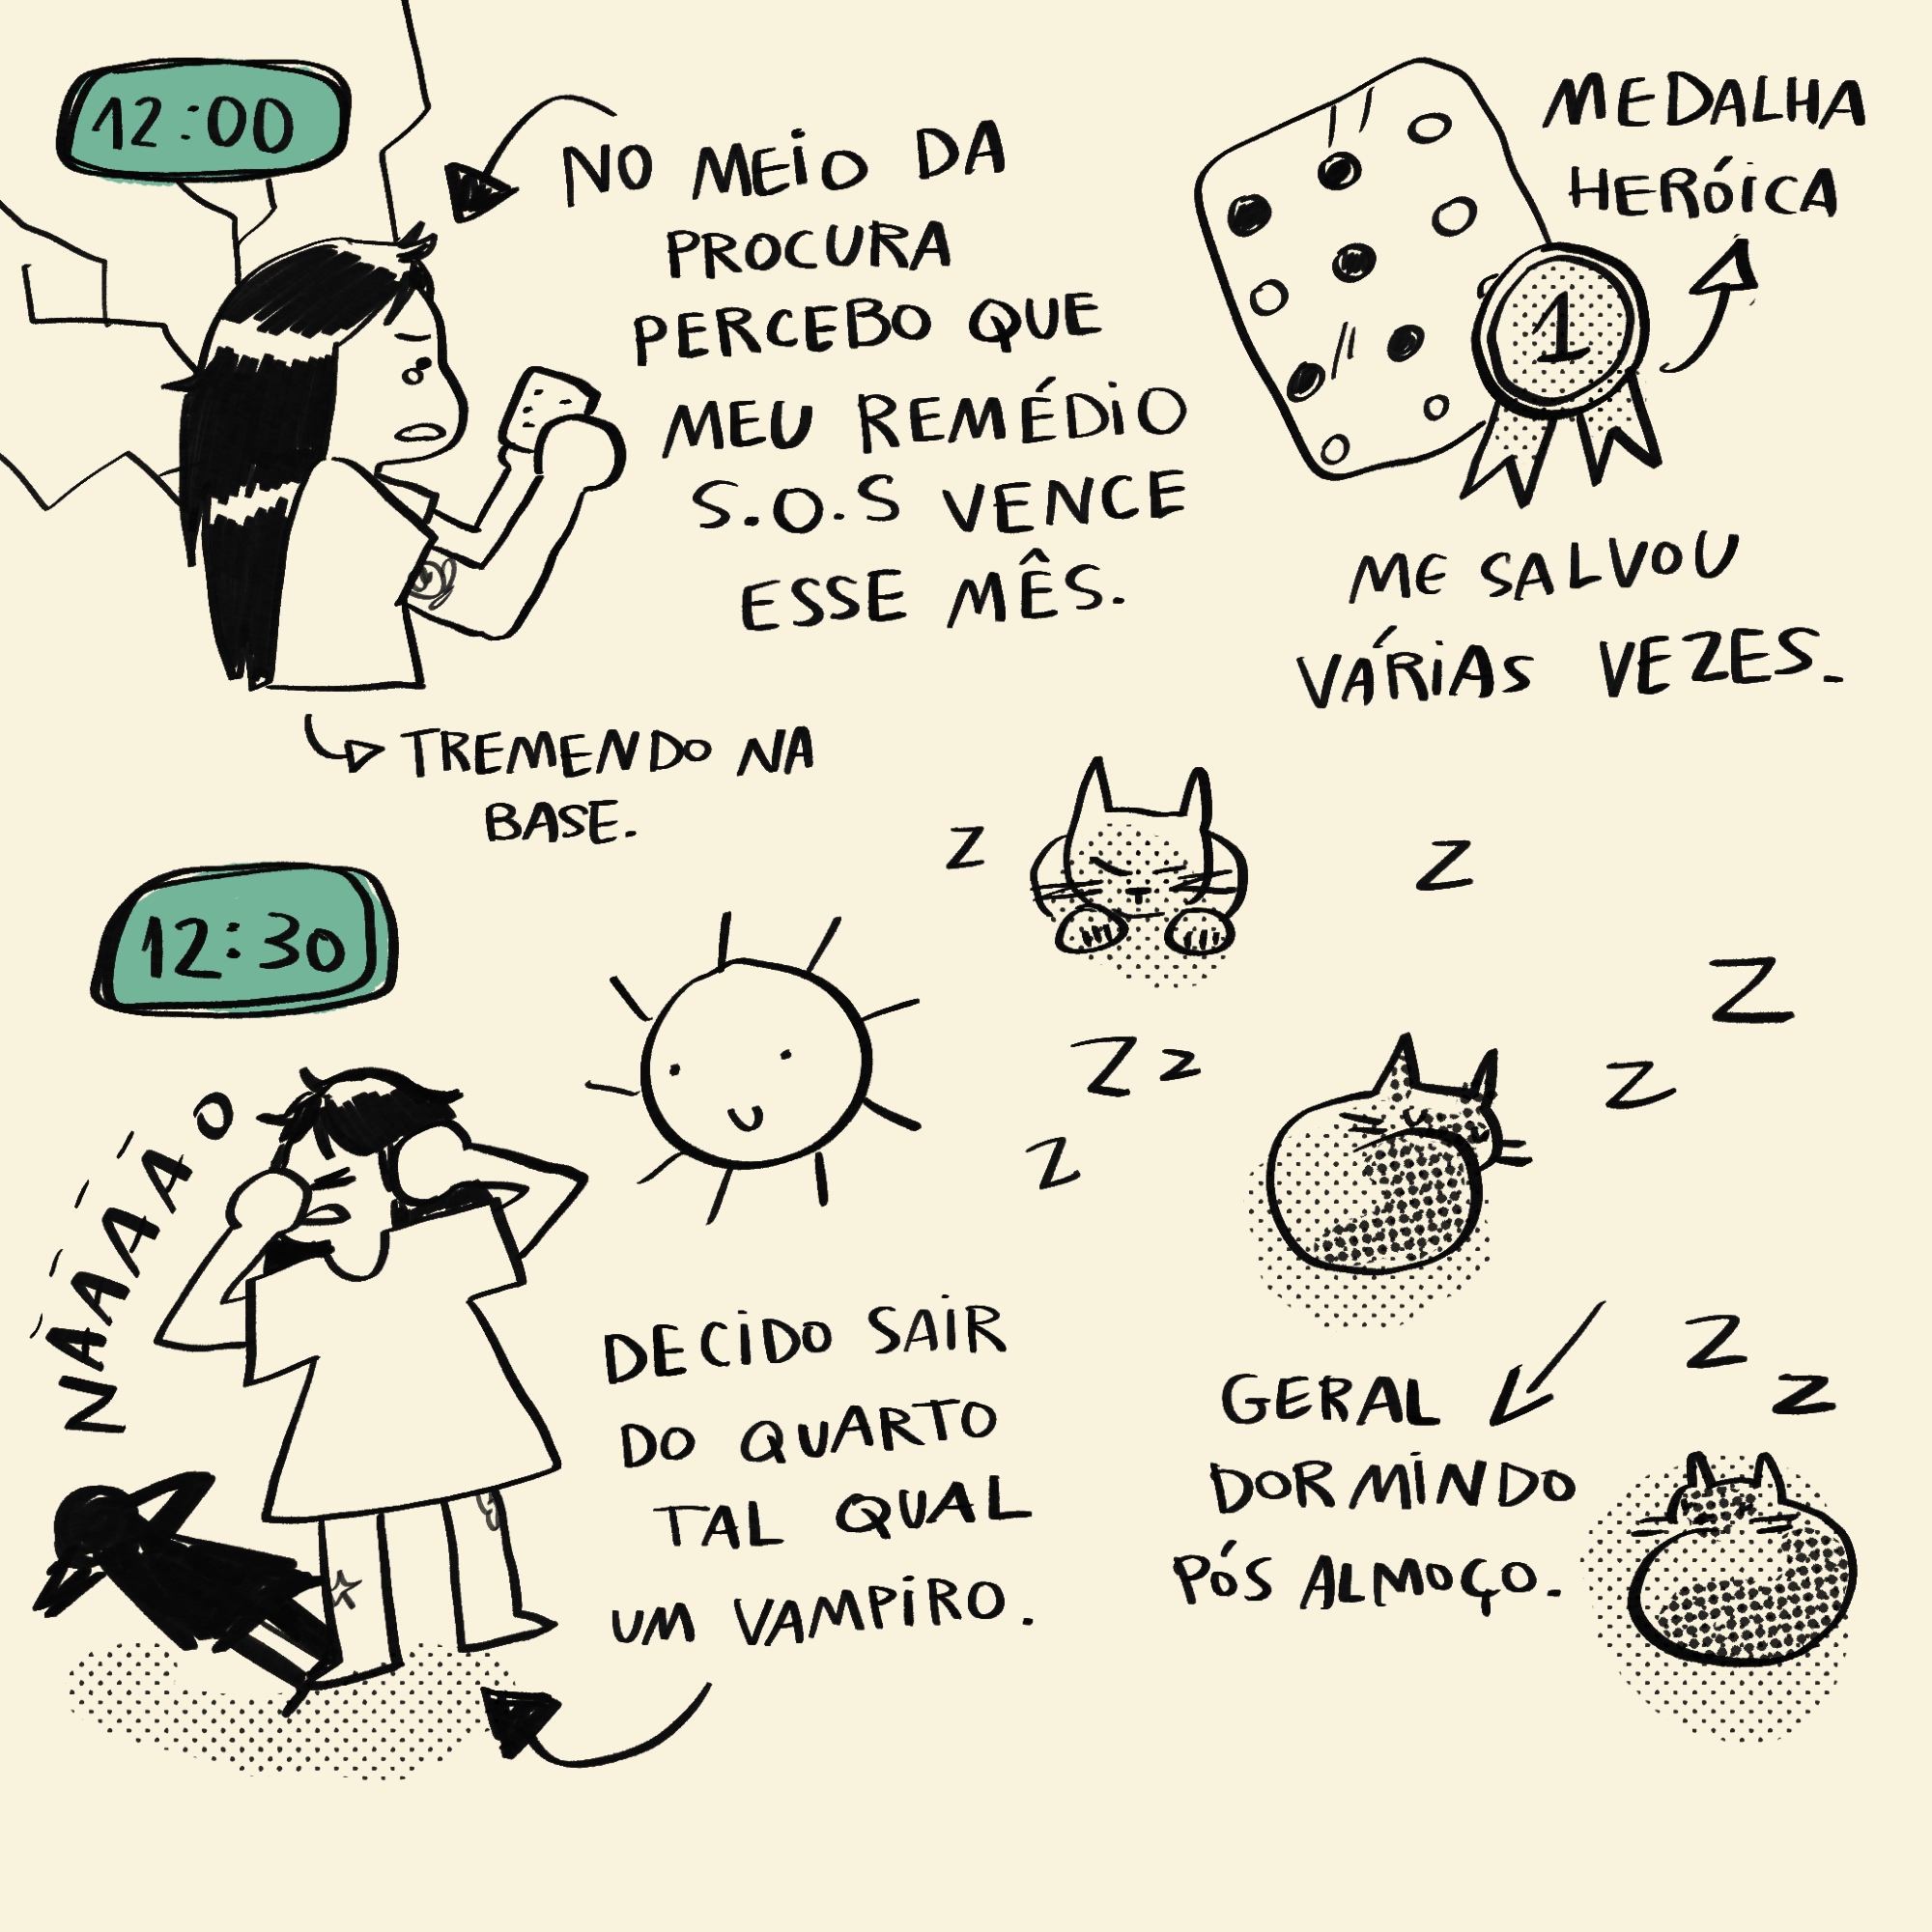 12:00
NO MEIO DA
PROCURA
PERCEBO QUE
MEU REMÉDIO
S.O.S VENCE
ESSE MÊS.
TREMENDO NA
BASE.
MEDALHA
HERÓICA
1
ME SALVOU
VÁRIAS VEZES.
12:30
NÃÃÃÃO
DECIDO SAIR
DO QUARTO
TAL QUAL
UM VAMPIRO.
Z
Z
Z
Z Z
Z
Z
GERAL
DORMINDO
PÓS ALMOÇO.
Z
Z